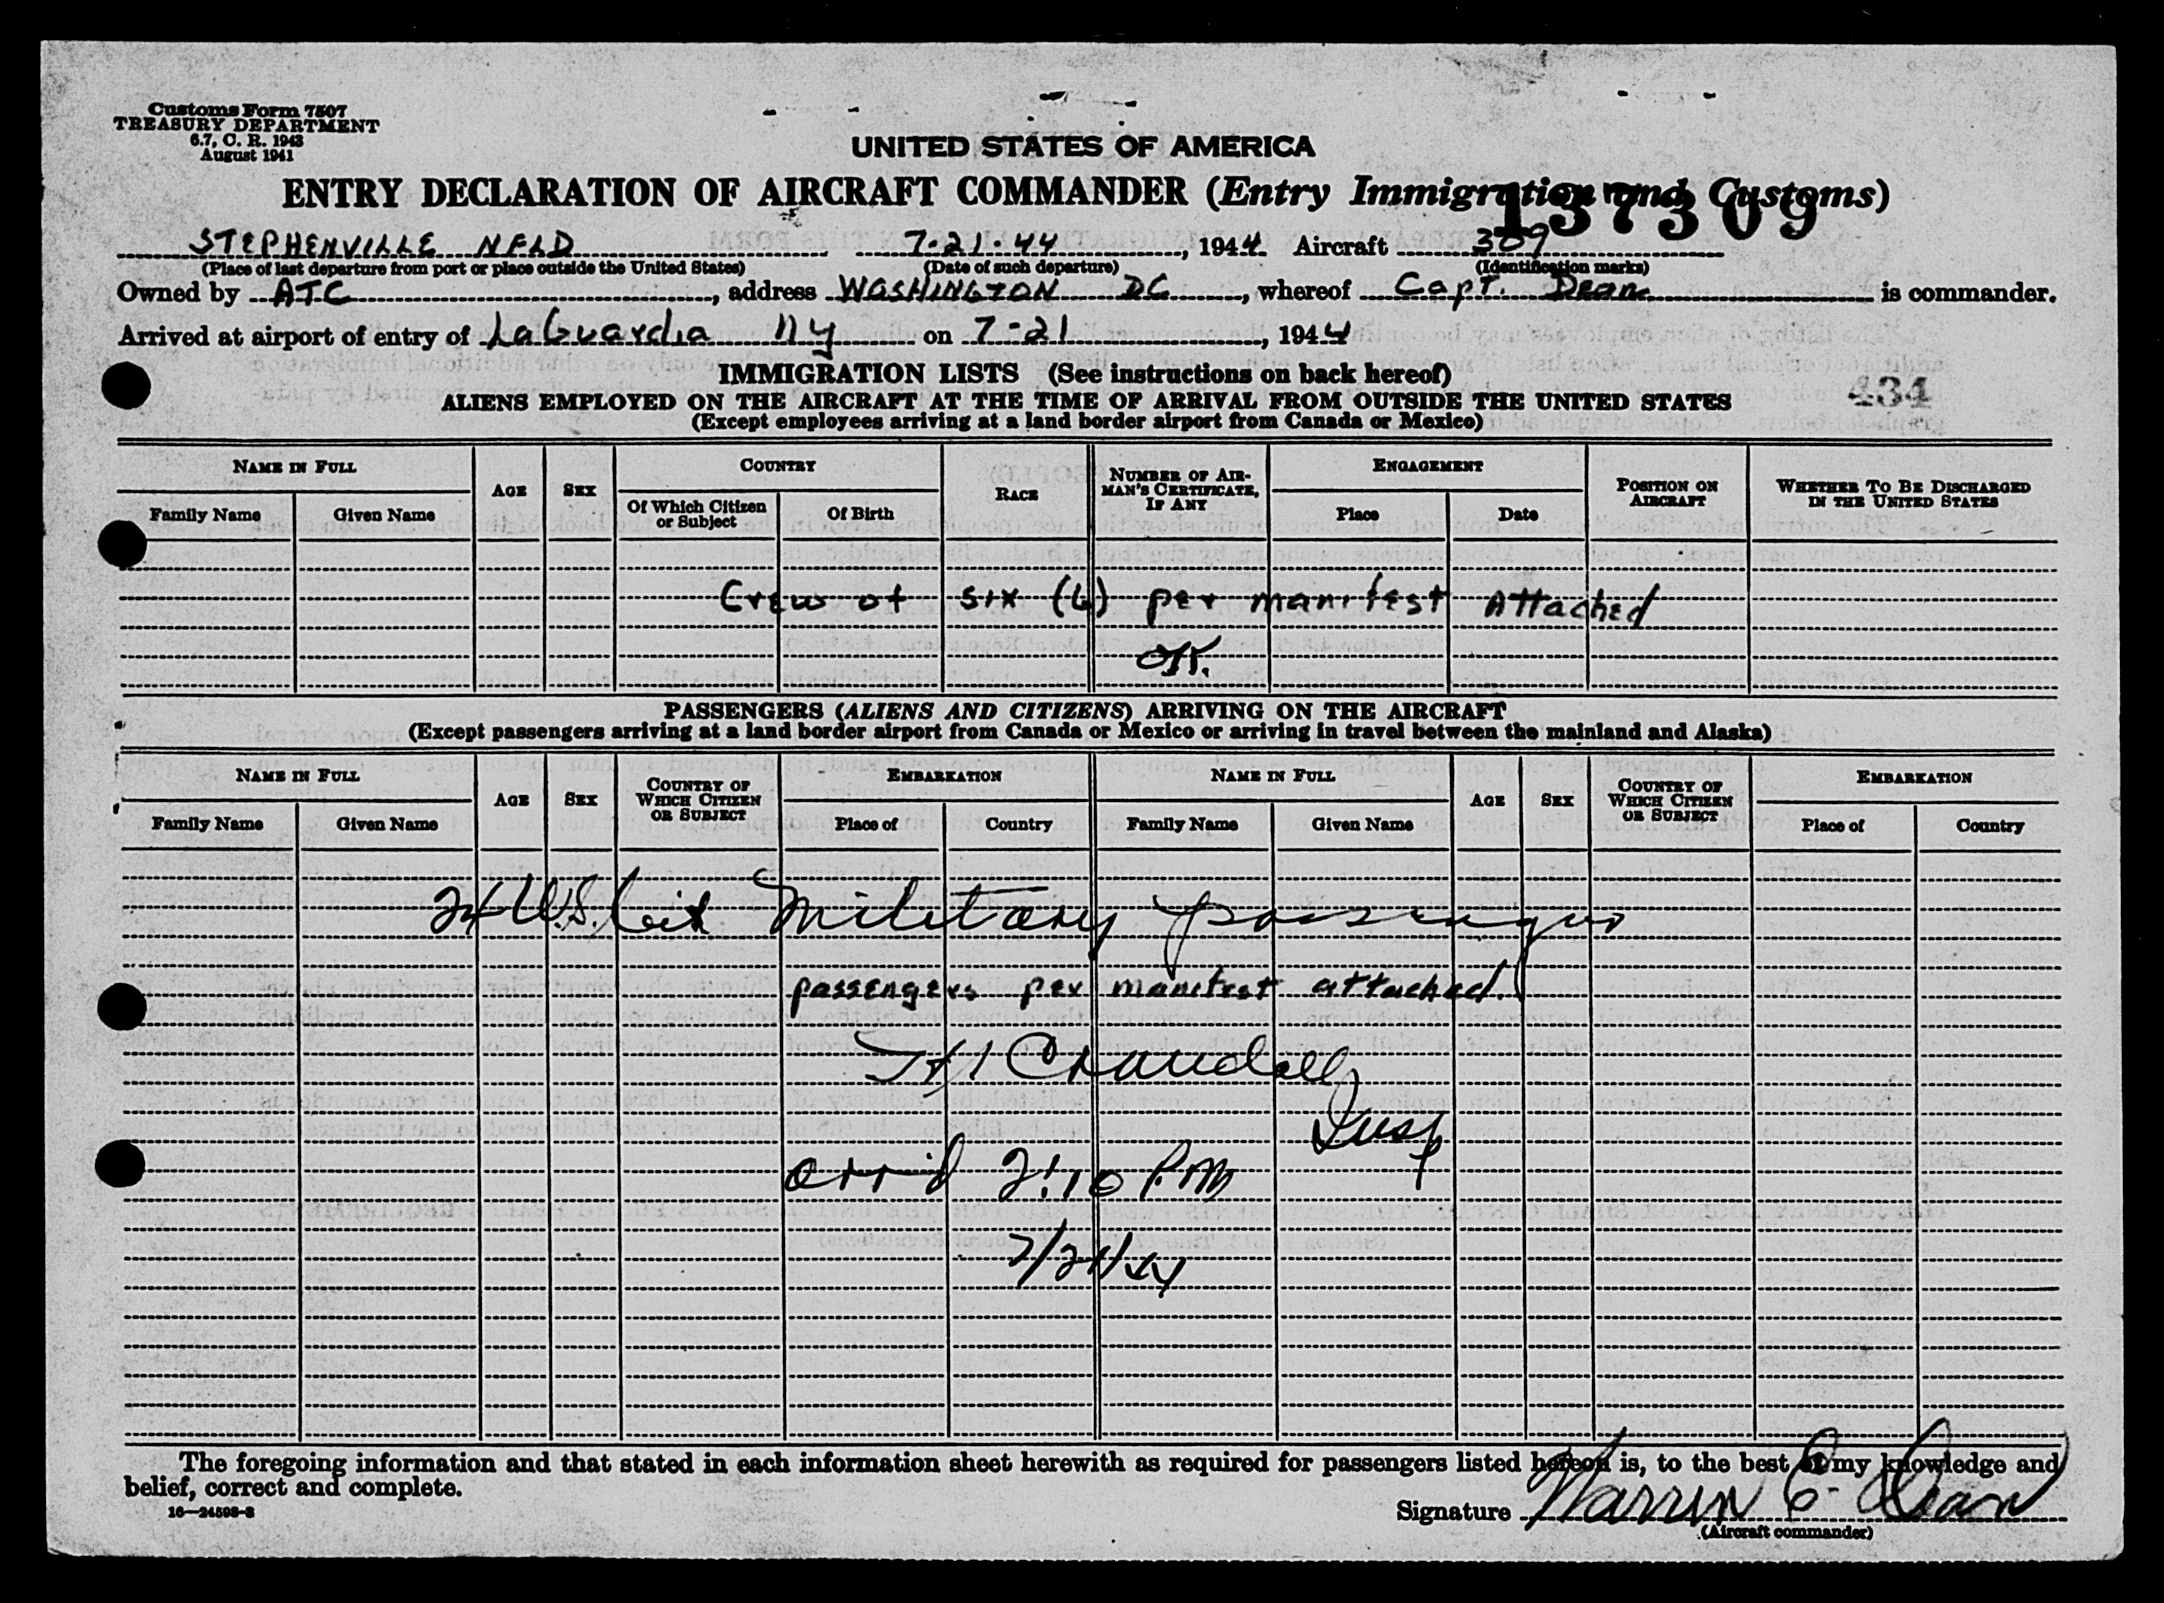 Customs Form 7507
TREASURY DEPARTMENT
6.7, C. R. 1943
August 1941
UNITED STATES OF AMERICA
ENTRY DECLARATION OF AIRCRAFT COMMANDER (Entry Immigration and Customs)
137309
STEPHENVILLE NFLD 7-21-44, 1944 Aircraft 309
(Place of last departure from port or place outside the United States) (Date of such departure) (Identification marks)
Owned by ATC, address WASHINGTON DC, whereof Capt. Dean is commander.
Arrived at airport of entry of LaGuardia NY on 7-21, 1944
IMMIGRATION LISTS (See instructions on back hereof)
434
ALIENS EMPLOYED ON THE AIRCRAFT AT THE TIME OF ARRIVAL FROM OUTSIDE THE UNITED STATES
(Except employees arriving at a land border airport from Canada or Mexico)
NAME IN FULL AGE SEX COUNTRY RACE NUMBER OF AIRMAN'S CERTIFICATE, IF ANY ENGAGEMENT POSITION ON AIRCRAFT WHETHER TO BE DISCHARGED IN THE UNITED STATES
Family Name Given Name Of Which Citizen or Subject Of Birth Place Date
Crew of six (6) per manifest Attached
OK.
PASSENGERS (ALIENS AND CITIZENS) ARRIVING ON THE AIRCRAFT
(Except passengers arriving at a land border airport from Canada or Mexico or arriving in travel between the mainland and Alaska)
NAME IN FULL AGE SEX COUNTRY OF WHICH CITIZEN OR SUBJECT EMBARKATION NAME IN FULL AGE SEX COUNTRY OF WHICH CITIZEN OR SUBJECT EMBARKATION
Family Name Given Name Place of Country Family Name Given Name Place of Country
24 U.S. Cit Military passengers
passengers per manifest attached.
Crandall
Insp
arr'd 2:10 P.M
7/21/44
The foregoing information and that stated in each information sheet herewith as required for passengers listed hereon is, to the best of my knowledge and
belief, correct and complete.
16—24598-2
Signature Warren C. Dean
(Aircraft commander)